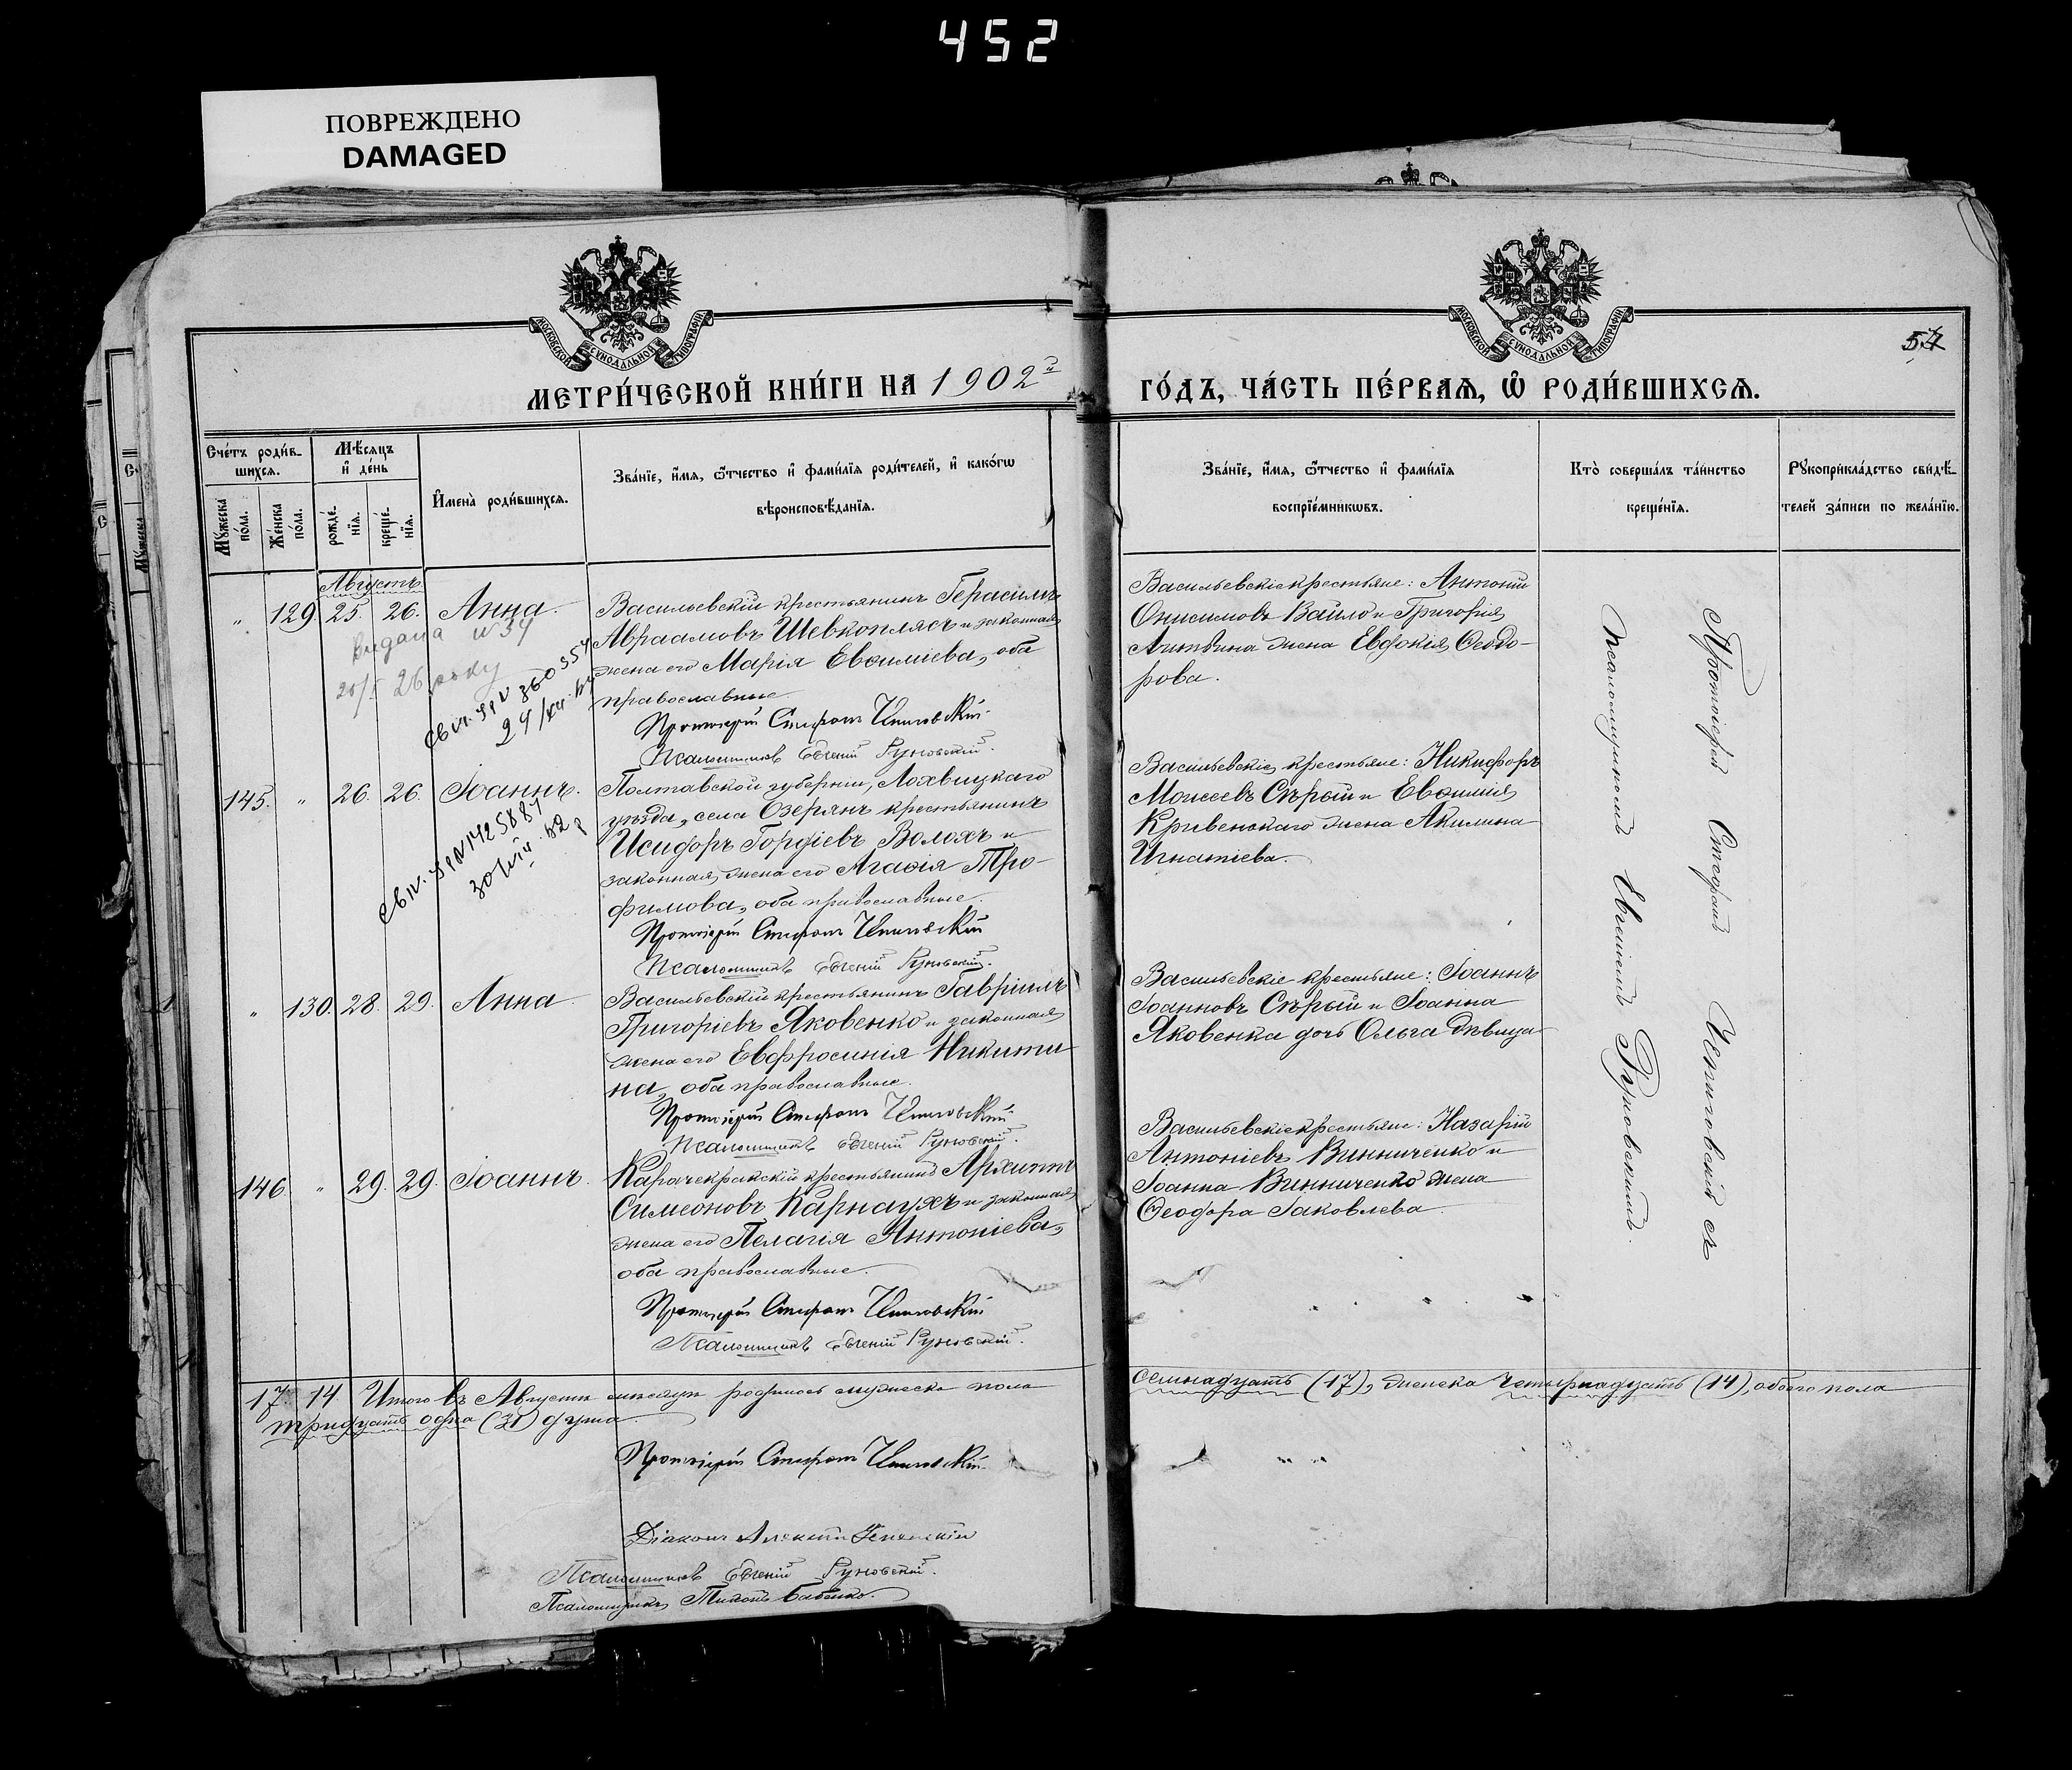 452
ПОВРЕЖДЕНО
DAMAGED
МОСКОВСКОЙ СУНОДАЛЬНОЙ ТИПОГРАФІИ
МОСКОВСКОЙ СУНОДАЛЬНОЙ ТИПОГРАФІИ
МЕТРИ́ЧЕСКОЙ КНИ́ГИ НА 1902й
ГО́ДЪ, ЧА́СТЬ ПЕ́РВАѦ, Ѡ҆ РОДИ́ВШИХСѦ.
Сче́тъ роди́в-
шихсѧ.
Мꙋ́жеска по́ла.
Же́нска по́ла.
Мѣ́сѧцъ
и҆ де́нь
рожде́-
нїѧ.
креще́-
нїѧ.
И҆мена̀ роди́вшихсѧ.
Зва́нїе, и҆́мѧ, ѻ҆́тчество и҆ фами́лїѧ роди́телей, и҆ како́гѡ
вѣроисповѣ́данїѧ.
Зва́нїе, и҆́мѧ, ѻ҆́тчество и҆ фами́лїѧ
воспрїе́мникѡвъ.
Кто̀ соверша́лъ та́инство
креще́нїѧ.
Рꙋкоприкла́дство свидѣ́-
телей за́писи по жела́нїю.
Августъ
" 129. 25. 26. Анна.
Васильевскій крестьянинъ Герасимъ
Авраамовъ Шевкоплясъ и законная
жена его Марія Евѳиміева, оба
православные.
Протоіерей Стефанъ
Псаломщикъ Евгеній Руновскій.
Васильевскіе крестьяне: Антоній
Онисимовъ Вайло и Григорія
Литвина жена Евдокія Ѳеодо-
рова.
Видана № 34
26 року
145. " 26. 26. Іоаннъ.
Полтавской губерніи, Лохвицкаго
уѣзда, села Озерянъ крестьянинъ
Исидоръ Гордіевъ Волохъ и
законная жена его Агаѳія Тро-
фимова, оба православные.
Протоіерей Стефанъ
Псаломщикъ Евгеній Руновскій.
Васильевскіе крестьяне: Никифоръ
Моисеевъ Сѣрый и Евѳимія
Кривенскаго жена Акилина
Игнатіева.
" 130. 28. 29. Анна
Васильевскій крестьянинъ Гавріилъ
Григоріевъ Яковенко и законная
жена его Евфросинія Никити-
на, оба православные.
Протоіерей Стефанъ
Псаломщикъ Евгеній Руновскій.
Васильевскіе крестьяне: Іоаннъ
Іоанновъ Сѣрый и Іоанна
Яковенка дочь Ольга дѣвица
146 " 29. 29. Іоаннъ.
Карачекракскій крестьянинъ Архиппъ
Симеоновъ Карнаухъ и законная
жена его Пелагія Антоніева,
оба православные.
Протоіерей Стефанъ
Псаломщикъ Евгеній Руновскій.
Васильевскіе крестьяне: Назарій
Антоніевъ Винниченко и
Іоанна Винниченко жена
Ѳеодора Іаковлева.
Протоіерей Стефанъ
псаломщикомъ Евгеніемъ Руновскимъ.
17. 14. Итого въ Августѣ мѣсяцѣ родилось мужеска пола
семнадцать (17), женска четырнадцать (14), обоего пола
тридцать одна (31) душа.
Протоіерей Стефанъ
Діаконъ Алексій
Псаломщикъ Евгеній Руновскій.
Псаломщикъ Тихонъ Бабенко.